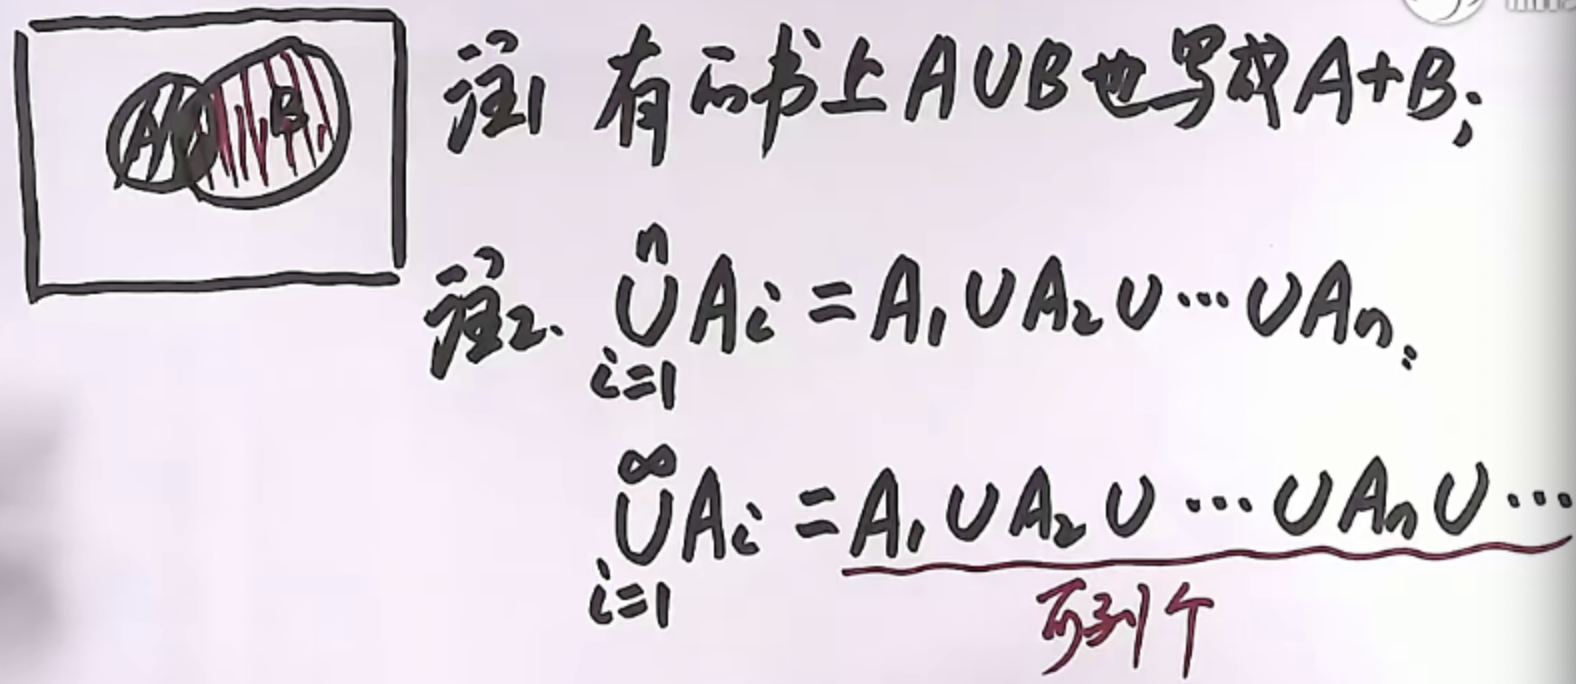 A B
注1 有的书上 A∪B 也写成 A+B;
注2. n∪i=1 Ai = A₁∪A₂∪⋯∪Aₙ;
∞∪i=1 Ai = A₁∪A₂∪⋯∪Aₙ∪⋯
可列个